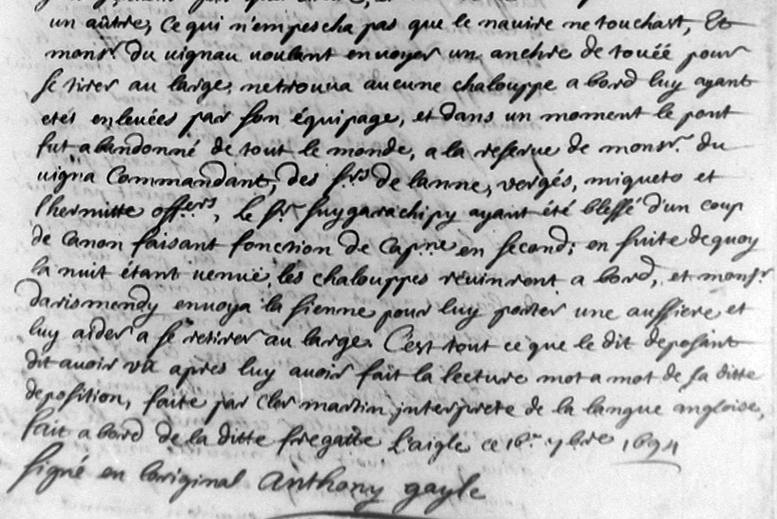 un autre, Ce qui n'empescha pas que le navire ne touchast, Et
monsr. du vignau voulant envoyer un anchre de touée pour
se tirer au large, ne trouva aucune chalouppe a bord luy ayant
etés enlevées par son équipage, et dans un moment le pont
fut abandonné de tout le monde, a la reserve de monsr. du
vigna Commandant, des srs. de lanne, vergés, miqueto et
l'hermitte offers, le sr. suygarachipy ayant été blessé d'un coup
de Canon faisant fonction de Capne en second; en suite de quoy
la nuit étant venue, les chalouppes revinrent a bord, et monsr
darismendy envoya la sienne pour luy porter une aussiere et
luy aider a se retirer au large. C'est tout ce que le dit deposant
dit avoir vu apres luy avoir fait la lecture mot a mot de sa ditte
deposition, faite par Cler martin interprete de la langue angloise,
fait a bord de la ditte fregatte l'aigle ce 16e. 7bre 1694
signé en loriginal Anthony gayle